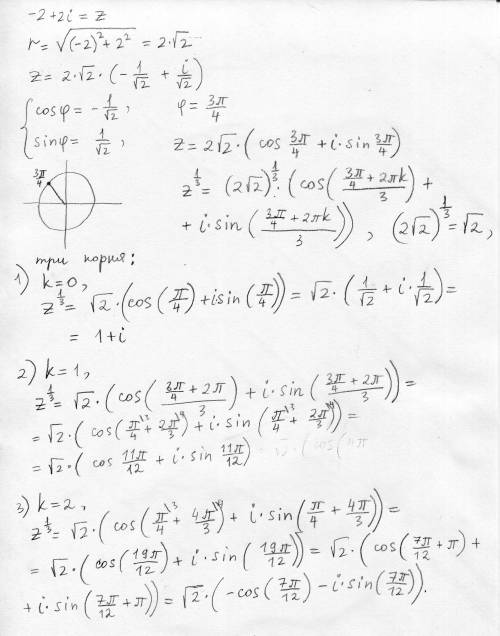 -2+2i = z
r = √((-2)²+2²) = 2·√2
z = 2·√2 · (-1/√2 + i/√2)
{ cosφ = -1/√2 , φ = 3π/4
sinφ = 1/√2 , z = 2√2 · (cos 3π/4 + i·sin 3π/4)
3π/4 z^(1/3) = (2√2)^(1/3) · (cos((3π/4 + 2πk)/3) +
+ i·sin((3π/4 + 2πk)/3)) , (2√2)^(1/3) = √2 ,
три корня:
1) k=0,
z^(1/3) = √2 · (cos(π/4) + i sin(π/4)) = √2 · (1/√2 + i · 1/√2) =
= 1+i
2) k=1,
z^(1/3) = √2 · (cos((3π/4 + 2π)/3) + i·sin((3π/4 + 2π)/3)) =
= √2 · (cos(π/4\3 + 2π/3\4) + i·sin(π/4\3 + 2π/3\4)) =
= √2 · (cos 11π/12 + i·sin 11π/12)
3) k=2,
z^(1/3) = √2 · (cos(π/4\3 + 4π/3\4) + i·sin(π/4 + 4π/3)) =
= √2 · (cos(19π/12) + i·sin(19π/12)) = √2 · (cos(7π/12 + π) +
+ i·sin(7π/12 + π)) = √2 · (-cos(7π/12) - i·sin(7π/12)).